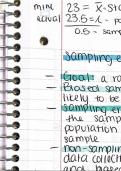 mine 23 = x̄-sto
actual 23.5 = A - po
0.5 = samp
Sampling e
- Goal: a ra
- Biased sam
likely to be
- sampling er
the samp
population
sample
- non-samplin
data collect
and biased